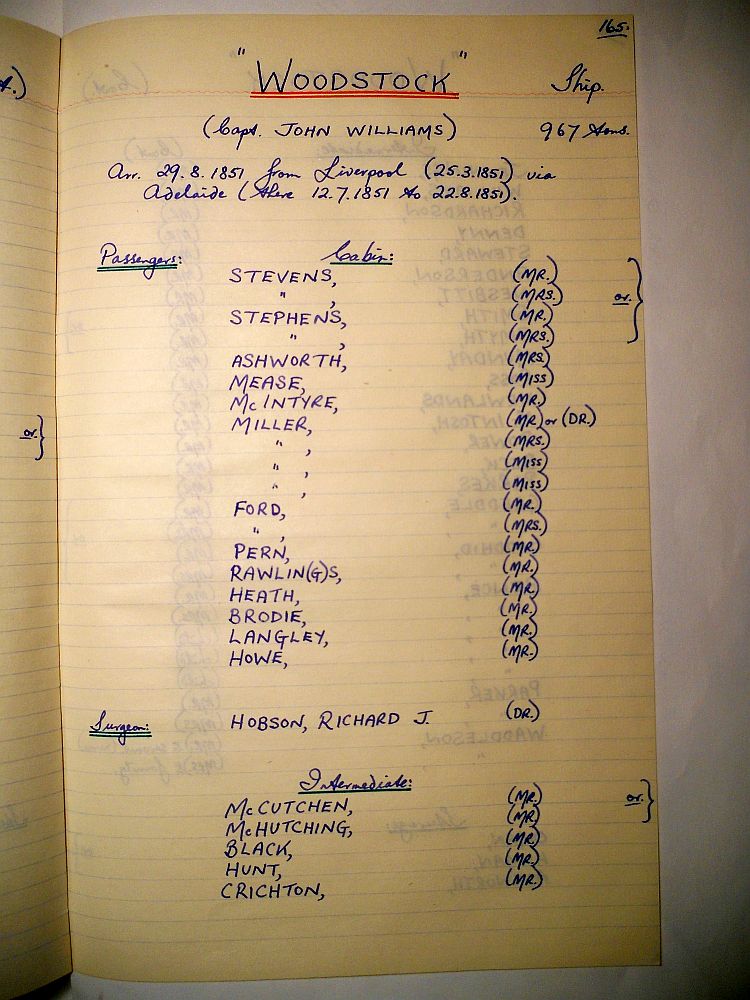 165.
"WOODSTOCK" Ship.
(Capt. JOHN WILLIAMS) 967 tons.
Arr. 29.8.1851 from Liverpool (25.3.1851) via
Adelaide (there 12.7.1851 to 22.8.1851).
Passengers: Cabin:
STEVENS, (MR.)
" , (MRS.) or.
STEPHENS, (MR.)
" , (MRS.)
ASHWORTH, (MRS.)
MEASE, (MISS)
McINTYRE, (MR.)
MILLER, (MR.) or (DR.)
or.
" , (MRS.)
" , (MISS)
" , (MISS)
FORD, (MR.)
" , (MRS.)
PERN, (MR.)
RAWLIN(G)S, (MR.)
HEATH, (MR.)
BRODIE, (MR.)
LANGLEY, (MR.)
HOWE, (MR.)
Surgeon: HOBSON, RICHARD J. (DR.)
Intermediate:
McCUTCHEN, (MR.) or.
McHUTCHING, (MR.)
BLACK, (MR.)
HUNT, (MR.)
CRICHTON, (MR.)